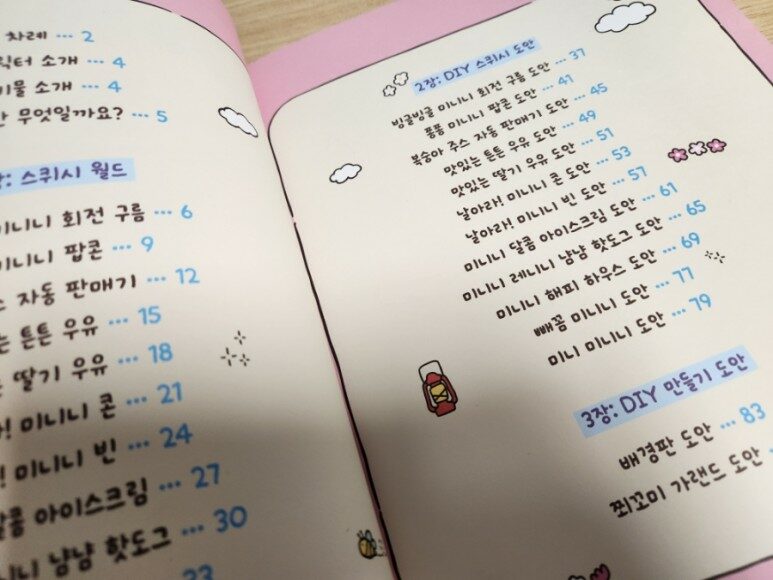 차례 ··· 2
소개 ··· 4
소개 ··· 4
무엇일까요? ··· 5
스퀴시 월드
미니니 회전 구름 ··· 6
미니니 팝콘 ··· 9
자동 판매기 ··· 12
튼튼 우유 ··· 15
딸기 우유 ··· 18
미니니 콘 ··· 21
미니니 빈 ··· 24
아이스크림 ··· 27
냠냠 핫도그 ··· 30
33
2장: DIY 스퀴시 도안
빙글빙글 미니니 회전 구름 도안 ··· 37
퐁퐁 미니니 팝콘 도안 ··· 41
복숭아 주스 자동 판매기 도안 ··· 45
맛있는 튼튼 우유 도안 ··· 49
맛있는 딸기 우유 도안 ··· 51
날아라! 미니니 콘 도안 ··· 53
날아라! 미니니 빈 도안 ··· 57
미니니 달콤 아이스크림 도안 ··· 61
미니니 레니니 냠냠 핫도그 도안 ··· 65
미니니 해피 하우스 도안 ··· 69
빼꼼 미니니 도안 ··· 77
미니 미니니 도안 ··· 79
3장: DIY 만들기 도안
배경판 도안 ··· 83
쬐꼬미 가랜드 도안 ···